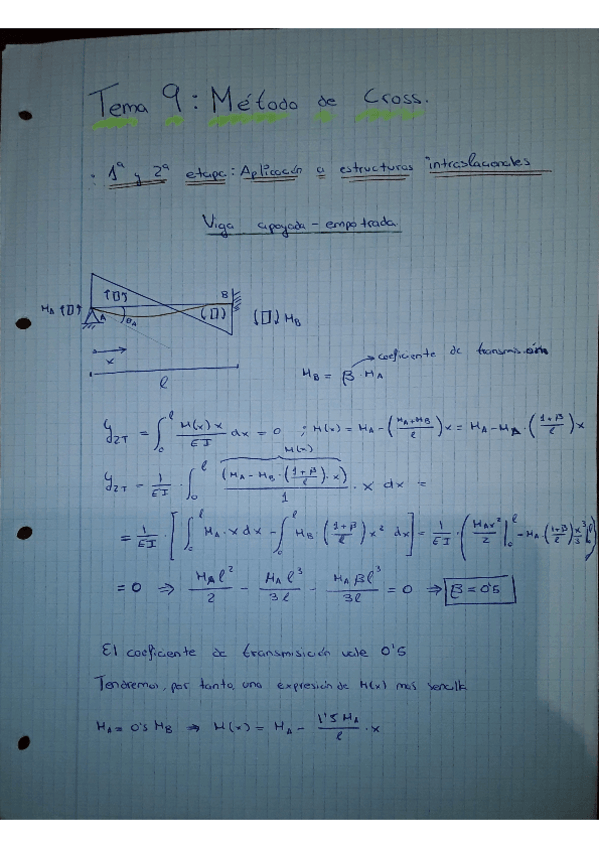 Tema 9: Método de Cross.
: 1ª y 2ª etapa: Aplicación a estructuras intraslacionales
Viga apoyada - empotrada
B
M_A A θ_A M_B
x
l
coeficiente de transmisión
M_B = β · M_A
y_2T = ∫_0^l M(x) x / EI dx = 0 ; M(x) = M_A - ((M_A + M_B) / l) x = M_A - M_A · ((1+β) / l) x
M(x)
y_2T = 1/EI · ∫_0^l (M_A - M_B · ((1+β) / l) · x) / 1 · x dx =
= 1/EI · [ ∫_0^l M_A · x dx - ∫_0^l M_B · ((1+β) / l) x² dx ] = 1/EI · ( M_A x² / 2 |_0^l - M_A · ((1+β) / l) x³/3 |_0^l )
= 0 ⇒ M_A l² / 2 - M_A l³ / 3l - M_A β l³ / 3l = 0 ⇒ β = 0'5
El coeficiente de transmisición vale 0'5
Tendremos, por tanto, una expresión de M(x) mas sencilla
M_A = 0'5 M_B ⇒ M(x) = M_A - 1'5 M_A / l · x